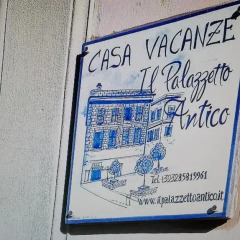 CASA VACANZE
Il Palazzetto
Antico
Tel. (+39)3285815961
www.ilpalazzettoantico.it